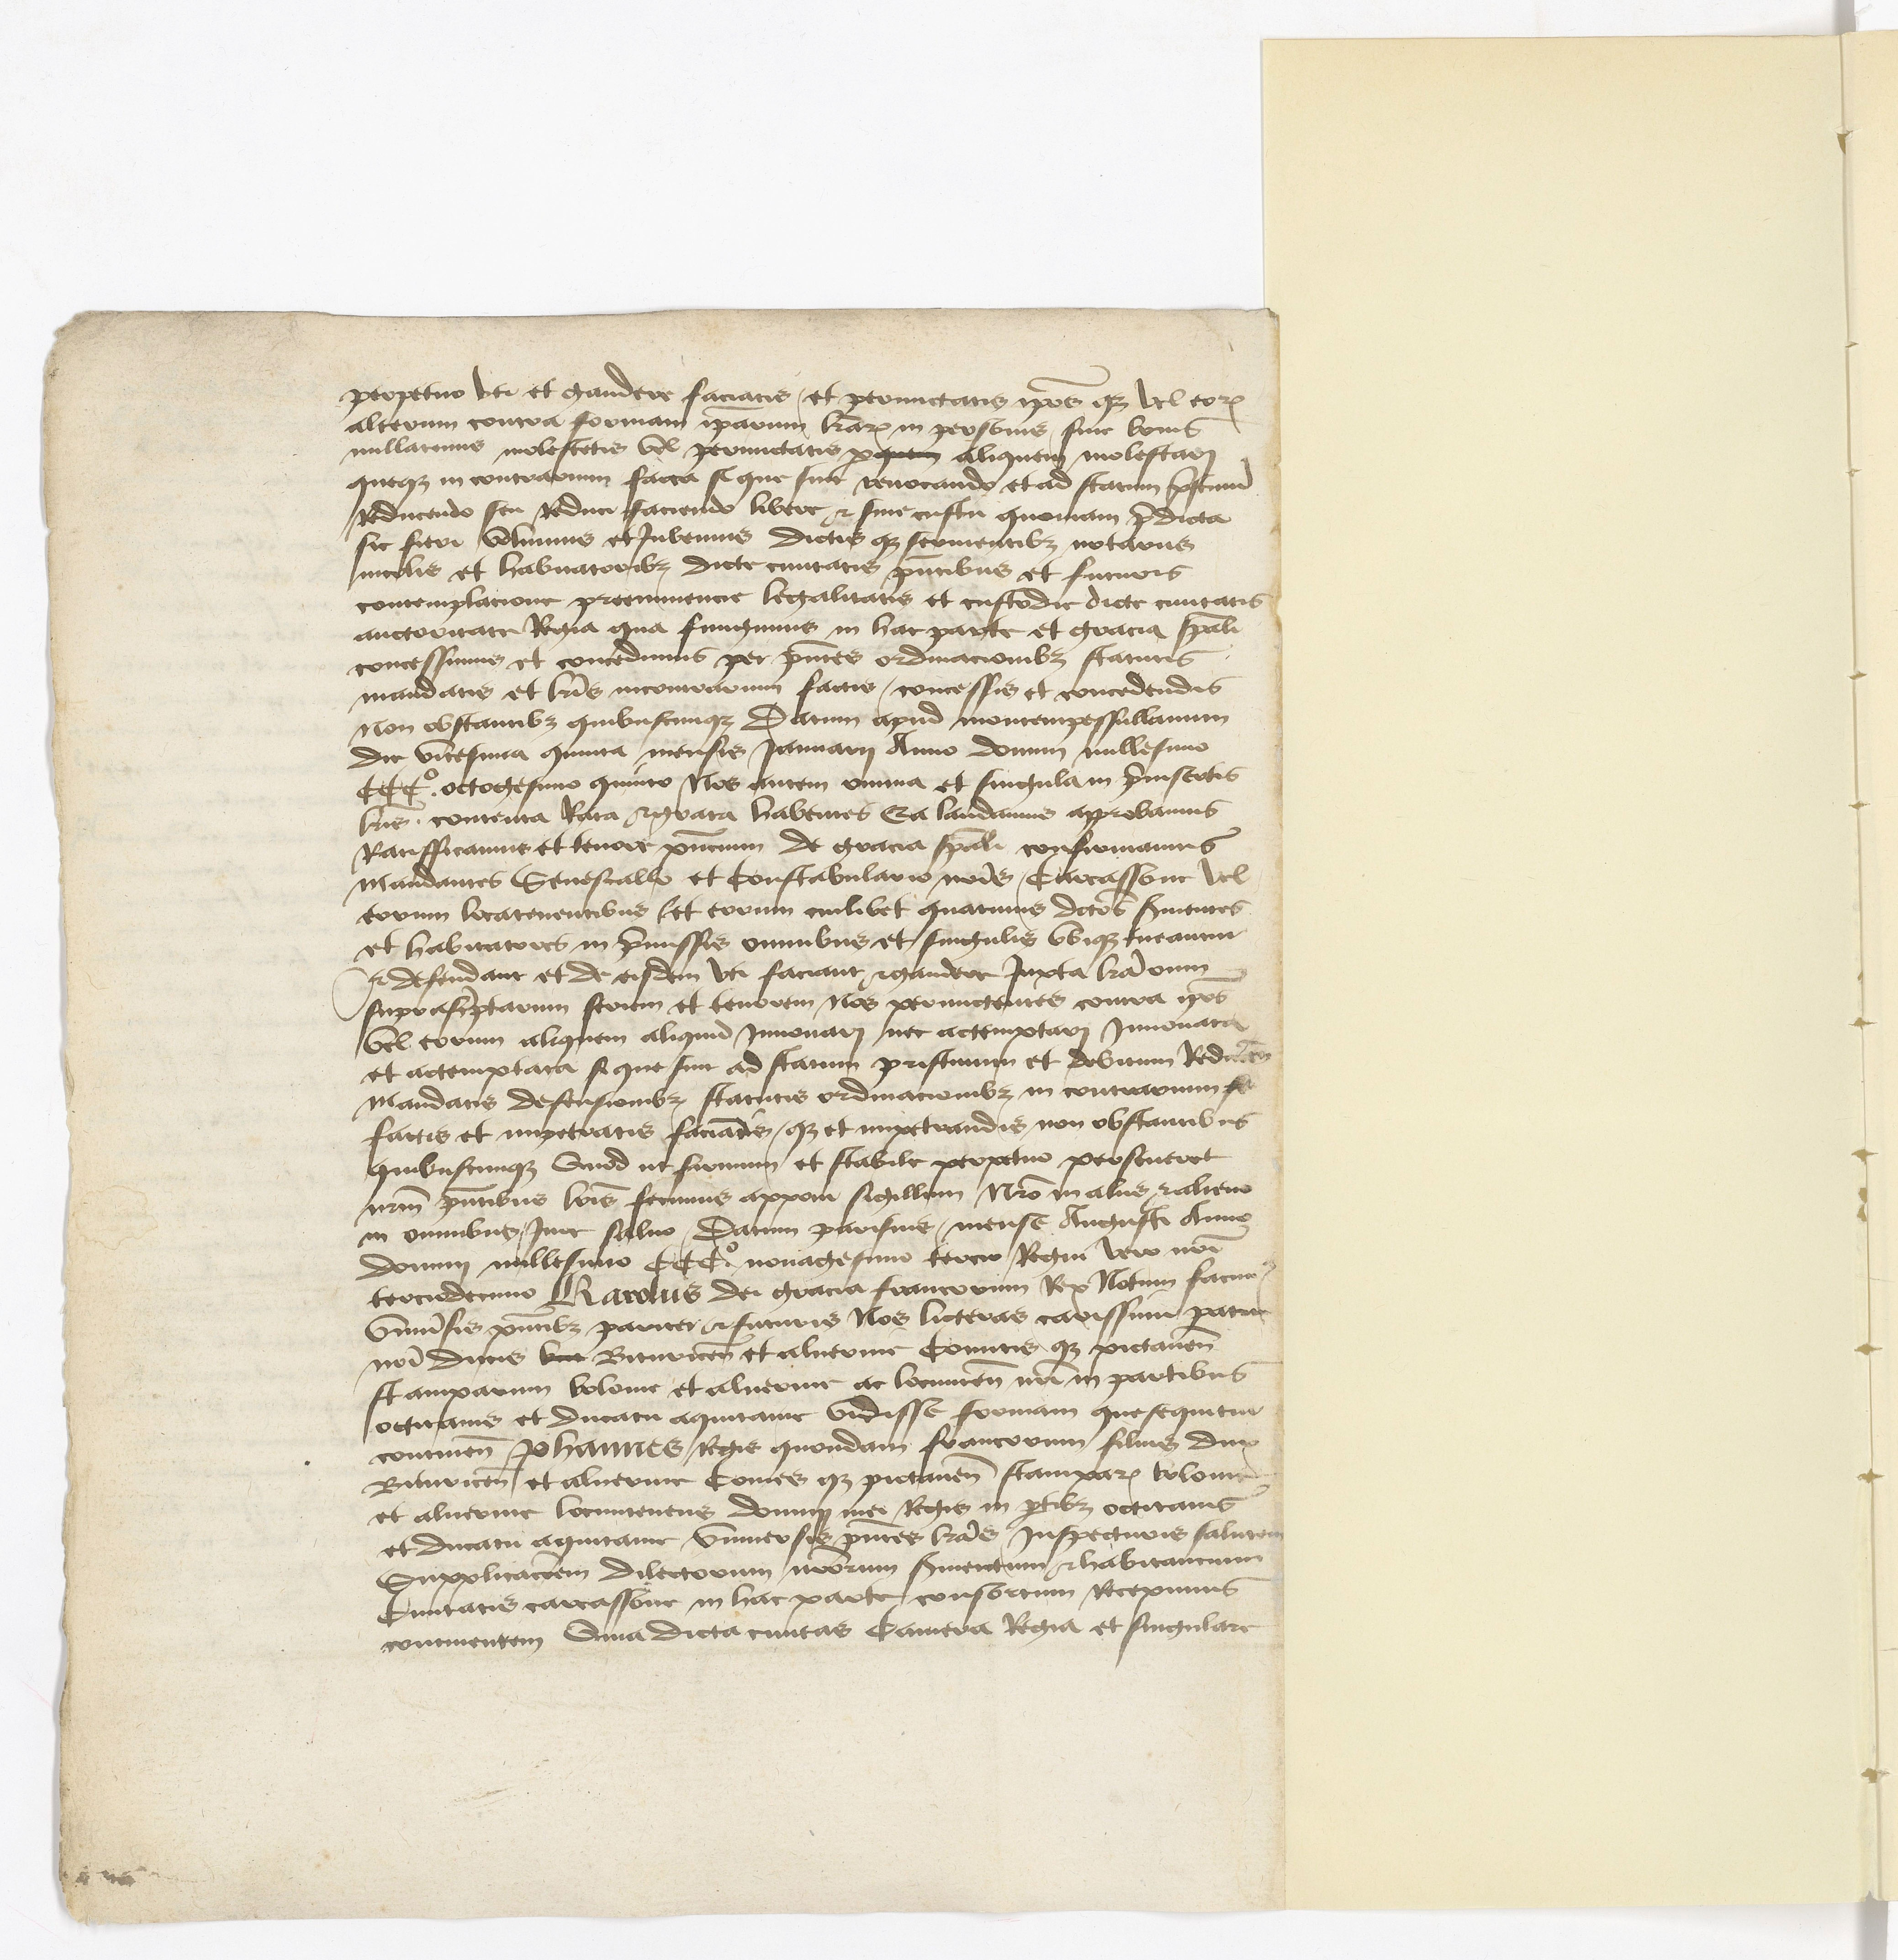 perpetuo uti et gaudere faciatis / et permictatis ip̃os qz vel eorꝝ
alterum contra formam ip̃arum lr̃arꝝ in personis / sive bonis
nullatenus molestetis vel permictatis p aliquem molestari
queqz in contrarium facta si que sint revocando et ad statum p̃stinũ
Reducendo seu Reduci faciendo libere & sine custu quoniam p̃dicta
sic fieri volumus et Jubemus dictis qz servientibz notariis
incolis et habitatoribz dicte civitatis p̃ntibus et futuris
contemplacione preeminencie legalitatis et custodie dicte civitatis
auctoritate Regia qua fungimus in hac parte et gracia sp̃ali
concessimus et concedimus per p̃ntes ordinacionibz statutis
mandatis et lr̃is incontrarium factis / concessis et concedendis
Non obstantibz quibuscumqz Datum apud montempessullanum
die vicesima quinta mensis Januarij Anno domini millesimo
CCCº. octogesimo quinto Nos autem omnia et singula in p̃insertis
lr̃is . contenta Rata & grata habentes Ea laudamus approbamus
Ratifficamus et tenore p̃ncium de gracia sp̃ali confirmamus
Mandantes Senescallo et Constabulario nr̃is / Carcassone vel
eorum locatenentibus / et eorum cuilibet quatinus dc̃os s̃vientes
et habitatores in p̃missis omnibus et singulis ubiqz tueantur
& defendant et de eisdem uti faciant & gaudere Juxta lr̃arum
suprasc̃ptarum seriem et tenorem Nos permictentes contra ip̃os
vel eorum aliquem aliquid Innovari nec actemptari Innovata
et actemptata si que sint ad statum pristinum et debitum Reducẽn
Mandatis defensionibz statutis ordinacionibz in contrarium fa
factis et impetratis faciẽdis / qz et impetrandis / non obstantibus
quibuscumqz Quod ut firmum et stabile perpetuo perseveret
nr̃m p̃ntibus lr̃is fecimus apponi sigillum Nr̃o in aliis & alieno
in omnibus / Jure salvo / Datum parisius / mense Augusti Anno
domini millesimo CCCº. nonagesimo tercio Regni vero nr̃i
terciodecimo Karolus dei gracia francorum Rex Notum facim9
Univ̾sis p̃ntibz pariter & futuris Nos licteras carissimi patrui
nr̃i Ducis Bituricen̄ et alvernie Comitis qz pictaven̄
stamparum bolonie et alvernie ac locumteñ nr̃i in partibus
occitanis et ducatu aquitanie vidisse formam que sequitur
continen̄ Johannes / Regis quondam francorum filius Dux
Bituricen̄ et alvernie Comes qz pictaven̄ stamparꝝ bolonie
et alvernie locumtenens domini mei Regis in p̃tibz occitanis
et ducatu aquitanie Universis p̃ntes lr̃as Inspecturis salutem
Supplicac̃oem dilectorum nr̃orum s̃vientum & habitancium
Civitatis carcassone in hac parte consortum Recepimus
continentem Quia dicta civitas Camera Regia et singulare